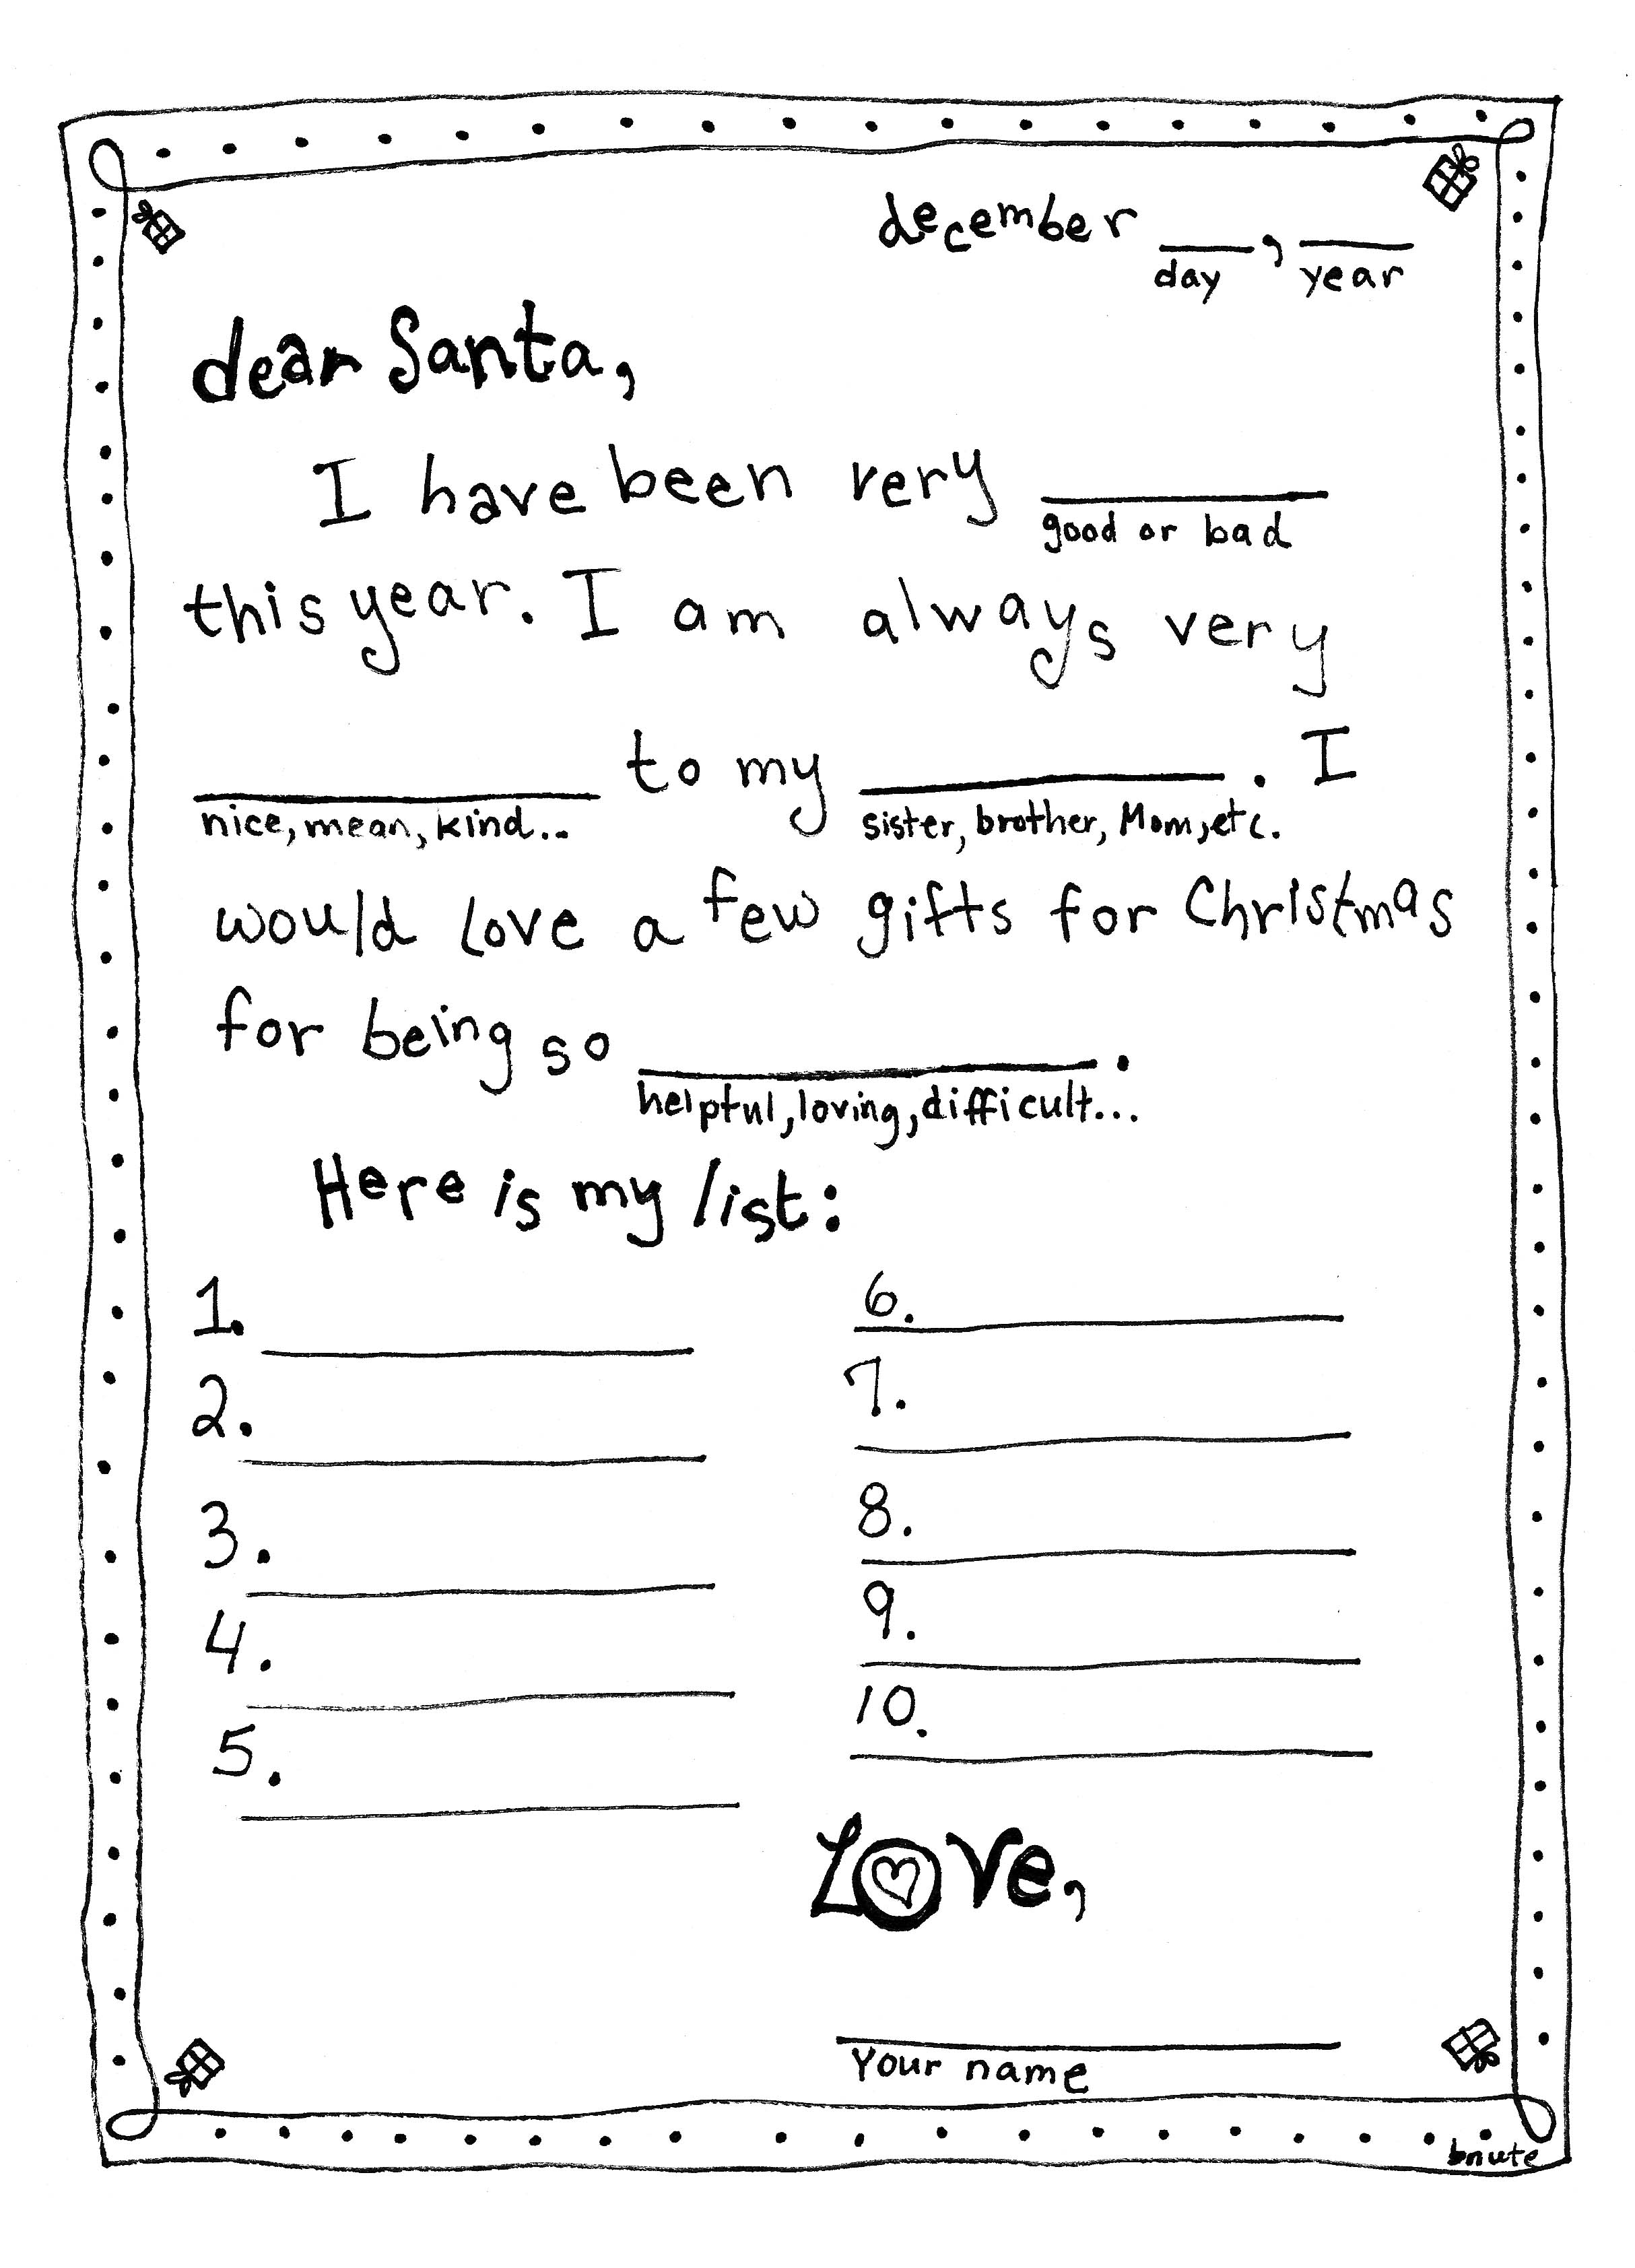 december ___, ___
day year
dear Santa,
I have been very ___
good or bad
this year. I am always very
___ to my ___. I
nice, mean, kind... sister, brother, Mom, etc.
would love a few gifts for Christmas
for being so ___.
helpful, loving, difficult...
Here is my list:
1.
2.
3.
4.
5.
6.
7.
8.
9.
10.
Love,
Your name
bnute